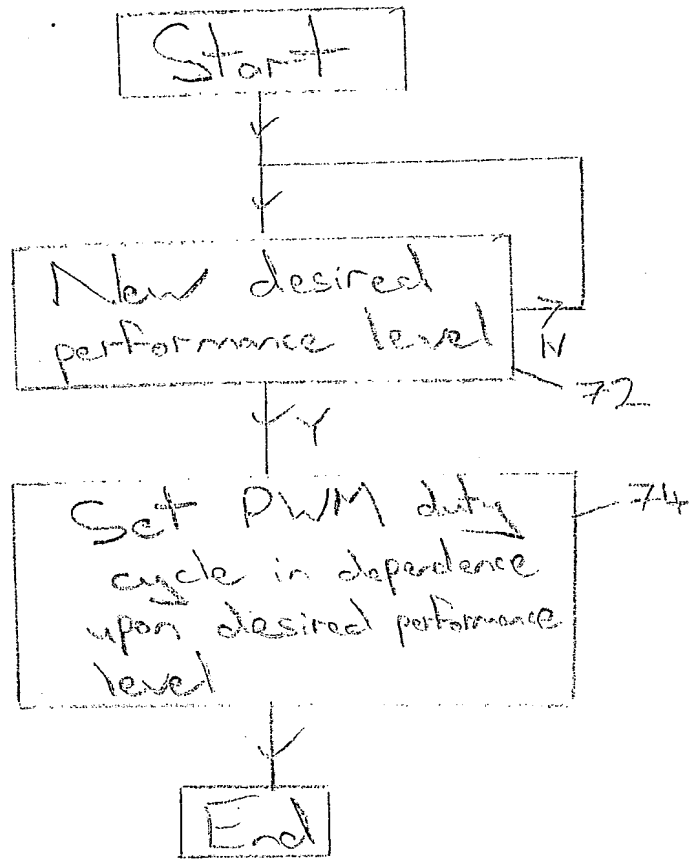 Start
New desired
performance level
N
72
Y
Set PWM duty
cycle in dependence
upon desired performance
level
74
End